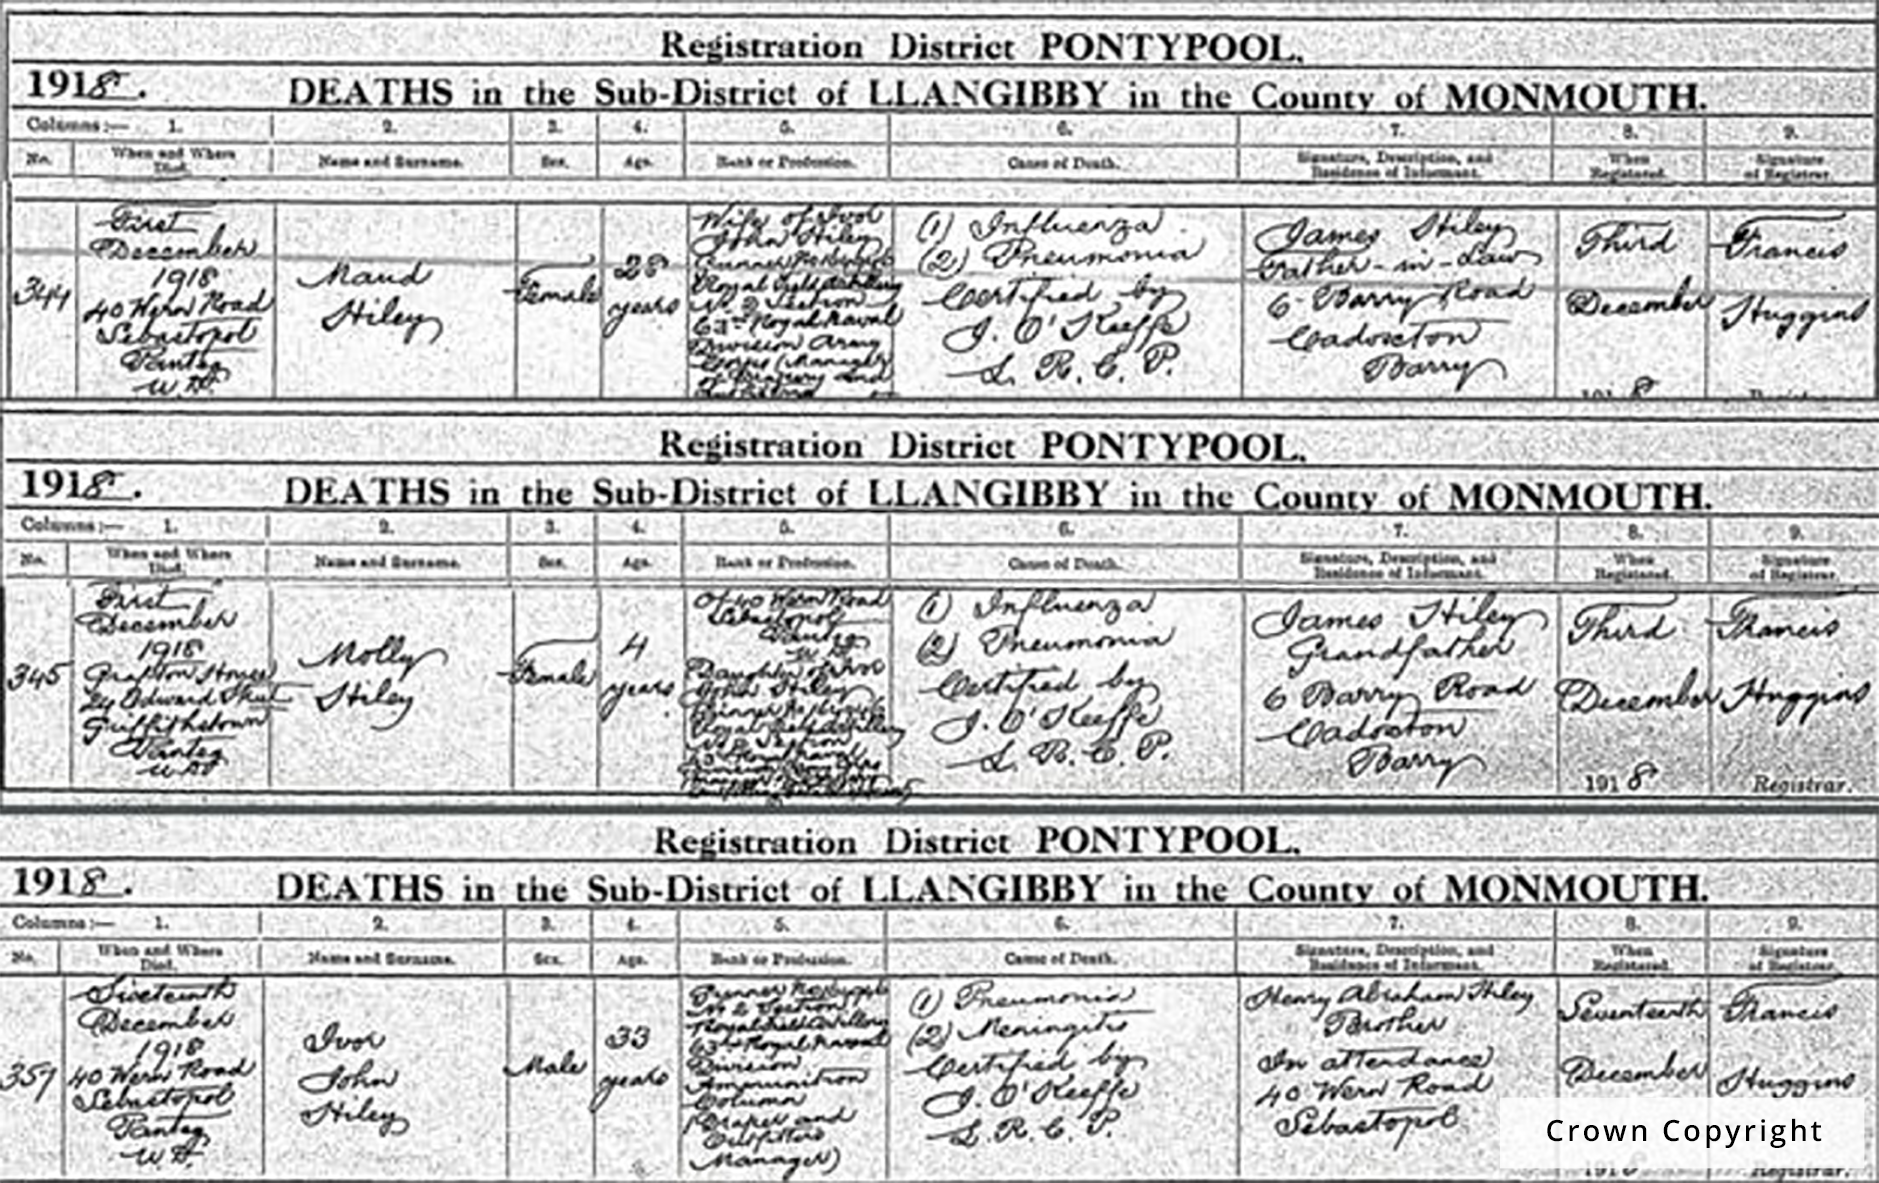 Registration District PONTYPOOL.
1918. DEATHS in the Sub-District of LLANGIBBY in the County of MONMOUTH.
Columns:— 1. 2. 3. 4. 5. 6. 7. 8. 9.
No. When and Where Died. Name and Surname. Sex. Age. Rank or Profession. Cause of Death. Signature, Description, and Residence of Informant. When Registered. Signature of Registrar.
344
First
December
1918
40 Wern Road
Sebastopol
Panteg
U.D.
Maud
Hiley
Female
28
years
Wife of Ivor
John Hiley
Gunner
Royal Field Artillery
No. 2 Section
63rd Royal Naval
Division
(1) Influenza
(2) Pneumonia
Certified by
J. O'Keeffe
L. R. C. P.
James Hiley
Father-in-Law
6 Barry Road
Cadoxton
Barry
Third
December
1918
Francis
Huggins
Registrar.
Registration District PONTYPOOL.
1918. DEATHS in the Sub-District of LLANGIBBY in the County of MONMOUTH.
Columns:— 1. 2. 3. 4. 5. 6. 7. 8. 9.
No. When and Where Died. Name and Surname. Sex. Age. Rank or Profession. Cause of Death. Signature, Description, and Residence of Informant. When Registered. Signature of Registrar.
345
First
December
1918
Grafton House
24 Edward Street
Griffithstown
Panteg
U.D.
Molly
Hiley
Female
4
years
Of 40 Wern Road
Sebastopol
Panteg
U.D.
Daughter of Ivor
John Hiley
Gunner
Royal Field Artillery
No. 2 Section
(1) Influenza
(2) Pneumonia
Certified by
J. O'Keeffe
L. R. C. P.
James Hiley
Grandfather
6 Barry Road
Cadoxton
Barry
Third
December
1918
Francis
Huggins
Registrar.
Registration District PONTYPOOL.
1918. DEATHS in the Sub-District of LLANGIBBY in the County of MONMOUTH.
Columns:— 1. 2. 3. 4. 5. 6. 7. 8. 9.
No. When and Where Died. Name and Surname. Sex. Age. Rank or Profession. Cause of Death. Signature, Description, and Residence of Informant. When Registered. Signature of Registrar.
Sixteenth
December
1918
40 Wern Road
Sebastopol
Panteg
U.D.
Ivor
John
Hiley
Male
33
years
Gunner
No 2 Section
Royal Field Artillery
63rd Royal Naval
Division
Ammunition
Column
(Draper and
Outfitters
Manager)
(1) Pneumonia
(2) Meningitis
Certified by
J. O'Keeffe
L. R. C. P.
Henry Abraham Hiley
Brother
In attendance
40 Wern Road
Sebastopol
Seventeenth
December
1918
Francis
Huggins
Registrar.
Crown Copyright